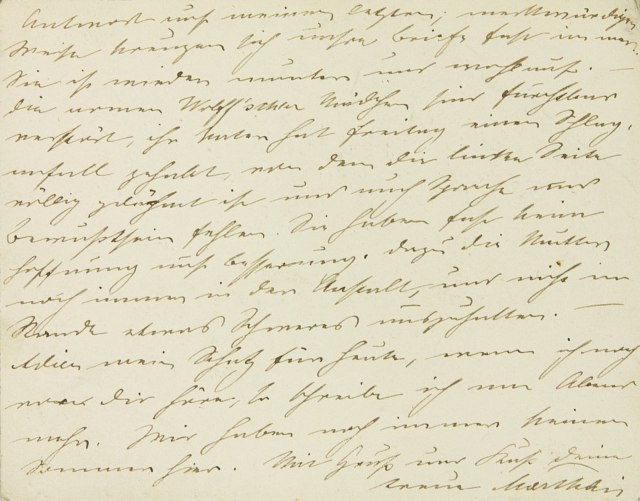 Antwort auf meinen letzten; merkwürdiger
Weise kreuzen sich unsre Briefe fast immer.
Sie ist wieder munter und wohlauf. —
die armen Wolff'schen Mädchen sind furchtbar
verstört, ihr Vater hat Freitag einen Schlag-
anfall gehabt, von dem die linke Seite
völlig gelähmt ist und auch Sprache und
Bewußtsein fehlen. Sie haben fast keine
Hoffnung auf Besserung. dazu die Mutter
noch immer in der Anstalt, und nicht im
Stande etwas Schweres auszuhalten. —
Adieu mein Schatz für heute, wenn ich noch
von dir höre, so schreibe ich am Abend
mehr. Wir haben noch immer keinen
Sommer hier. Mit Gruß und Kuß deine
treue